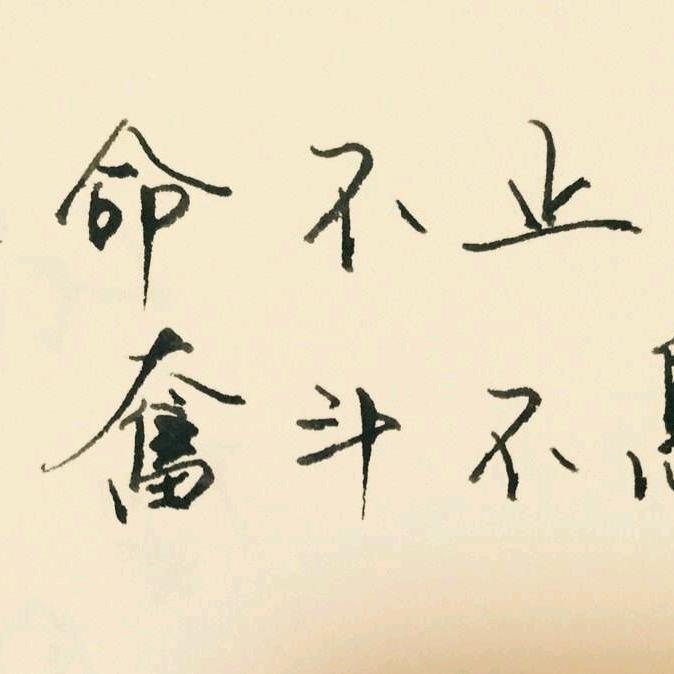 命不止
奮斗不